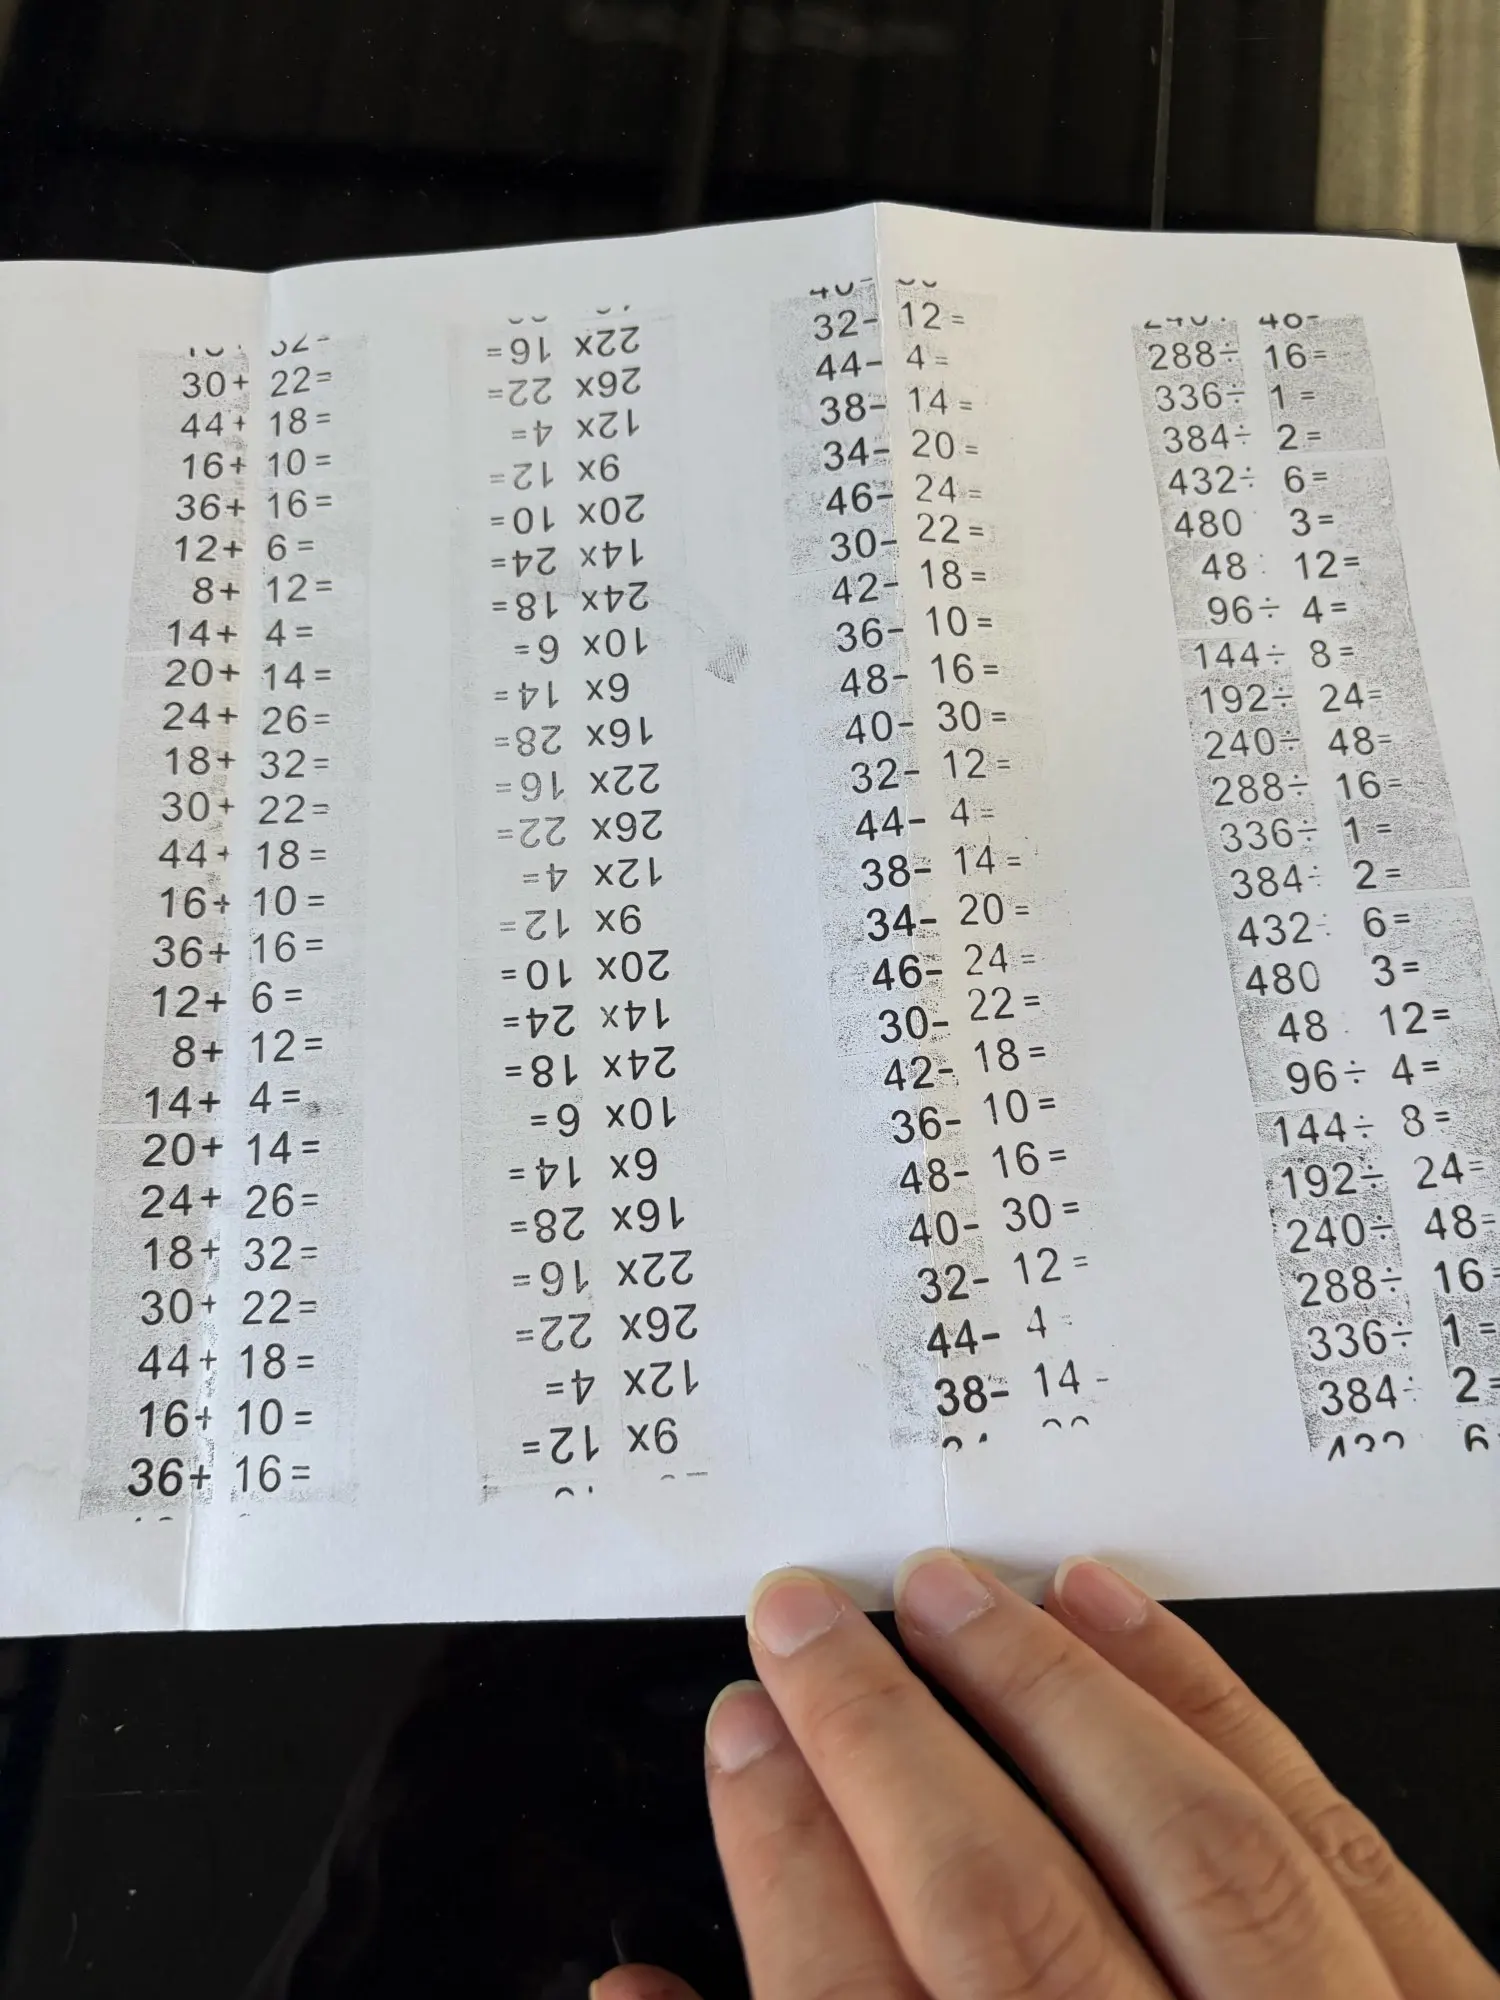 30+ 22=
44+ 18=
16+ 10=
36+ 16=
12+ 6=
8+ 12=
14+ 4=
20+ 14=
24+ 26=
18+ 32=
30+ 22=
44+ 18=
16+ 10=
36+ 16=
12+ 6=
8+ 12=
14+ 4=
20+ 14=
24+ 26=
18+ 32=
30+ 22=
44+ 18=
16+ 10=
36+ 16=
9x 12=
12x 4=
26x 22=
22x 16=
16x 28=
6x 14=
10x 6=
24x 18=
14x 24=
20x 10=
9x 12=
12x 4=
26x 22=
22x 16=
16x 28=
6x 14=
10x 6=
24x 18=
14x 24=
20x 10=
9x 12=
12x 4=
26x 22=
22x 16=
32- 12=
44- 4=
38- 14=
34- 20=
46- 24=
30- 22=
42- 18=
36- 10=
48- 16=
40- 30=
32- 12=
44- 4=
38- 14=
34- 20=
46- 24=
30- 22=
42- 18=
36- 10=
48- 16=
40- 30=
32- 12=
44- 4=
38- 14=
240÷ 48=
288÷ 16=
336÷ 1=
384÷ 2=
432÷ 6=
480 3=
48÷ 12=
96÷ 4=
144÷ 8=
192÷ 24=
240÷ 48=
288÷ 16=
336÷ 1=
384÷ 2=
432÷ 6=
480 3=
48÷ 12=
96÷ 4=
144÷ 8=
192÷ 24=
240÷ 48=
288÷ 16=
336÷ 1=
384÷ 2=